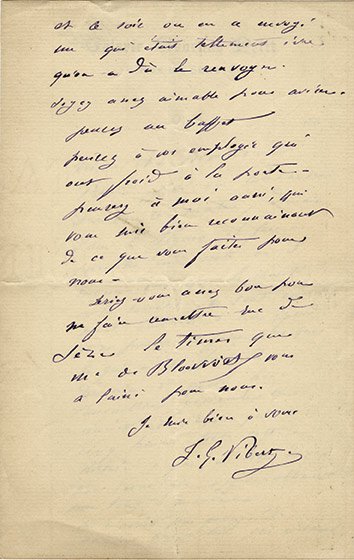 et ce soir on en a envoyé
un qui était tellement ivre
qu'on a dû le renvoyer.
Soyez assez aimable pour
pensez au buffet
pensez à vos employés qui
ont froid à la porte —
pensez à moi aussi, qui
vous suis bien reconnaissant
de ce que vous faites pour
nous —
Seriez-vous assez bon pour
me faire remettre rue de
le times que
Mr de Blowitz vous
a laissé pour nous.
Je suis bien à vous
J. G. Vibert